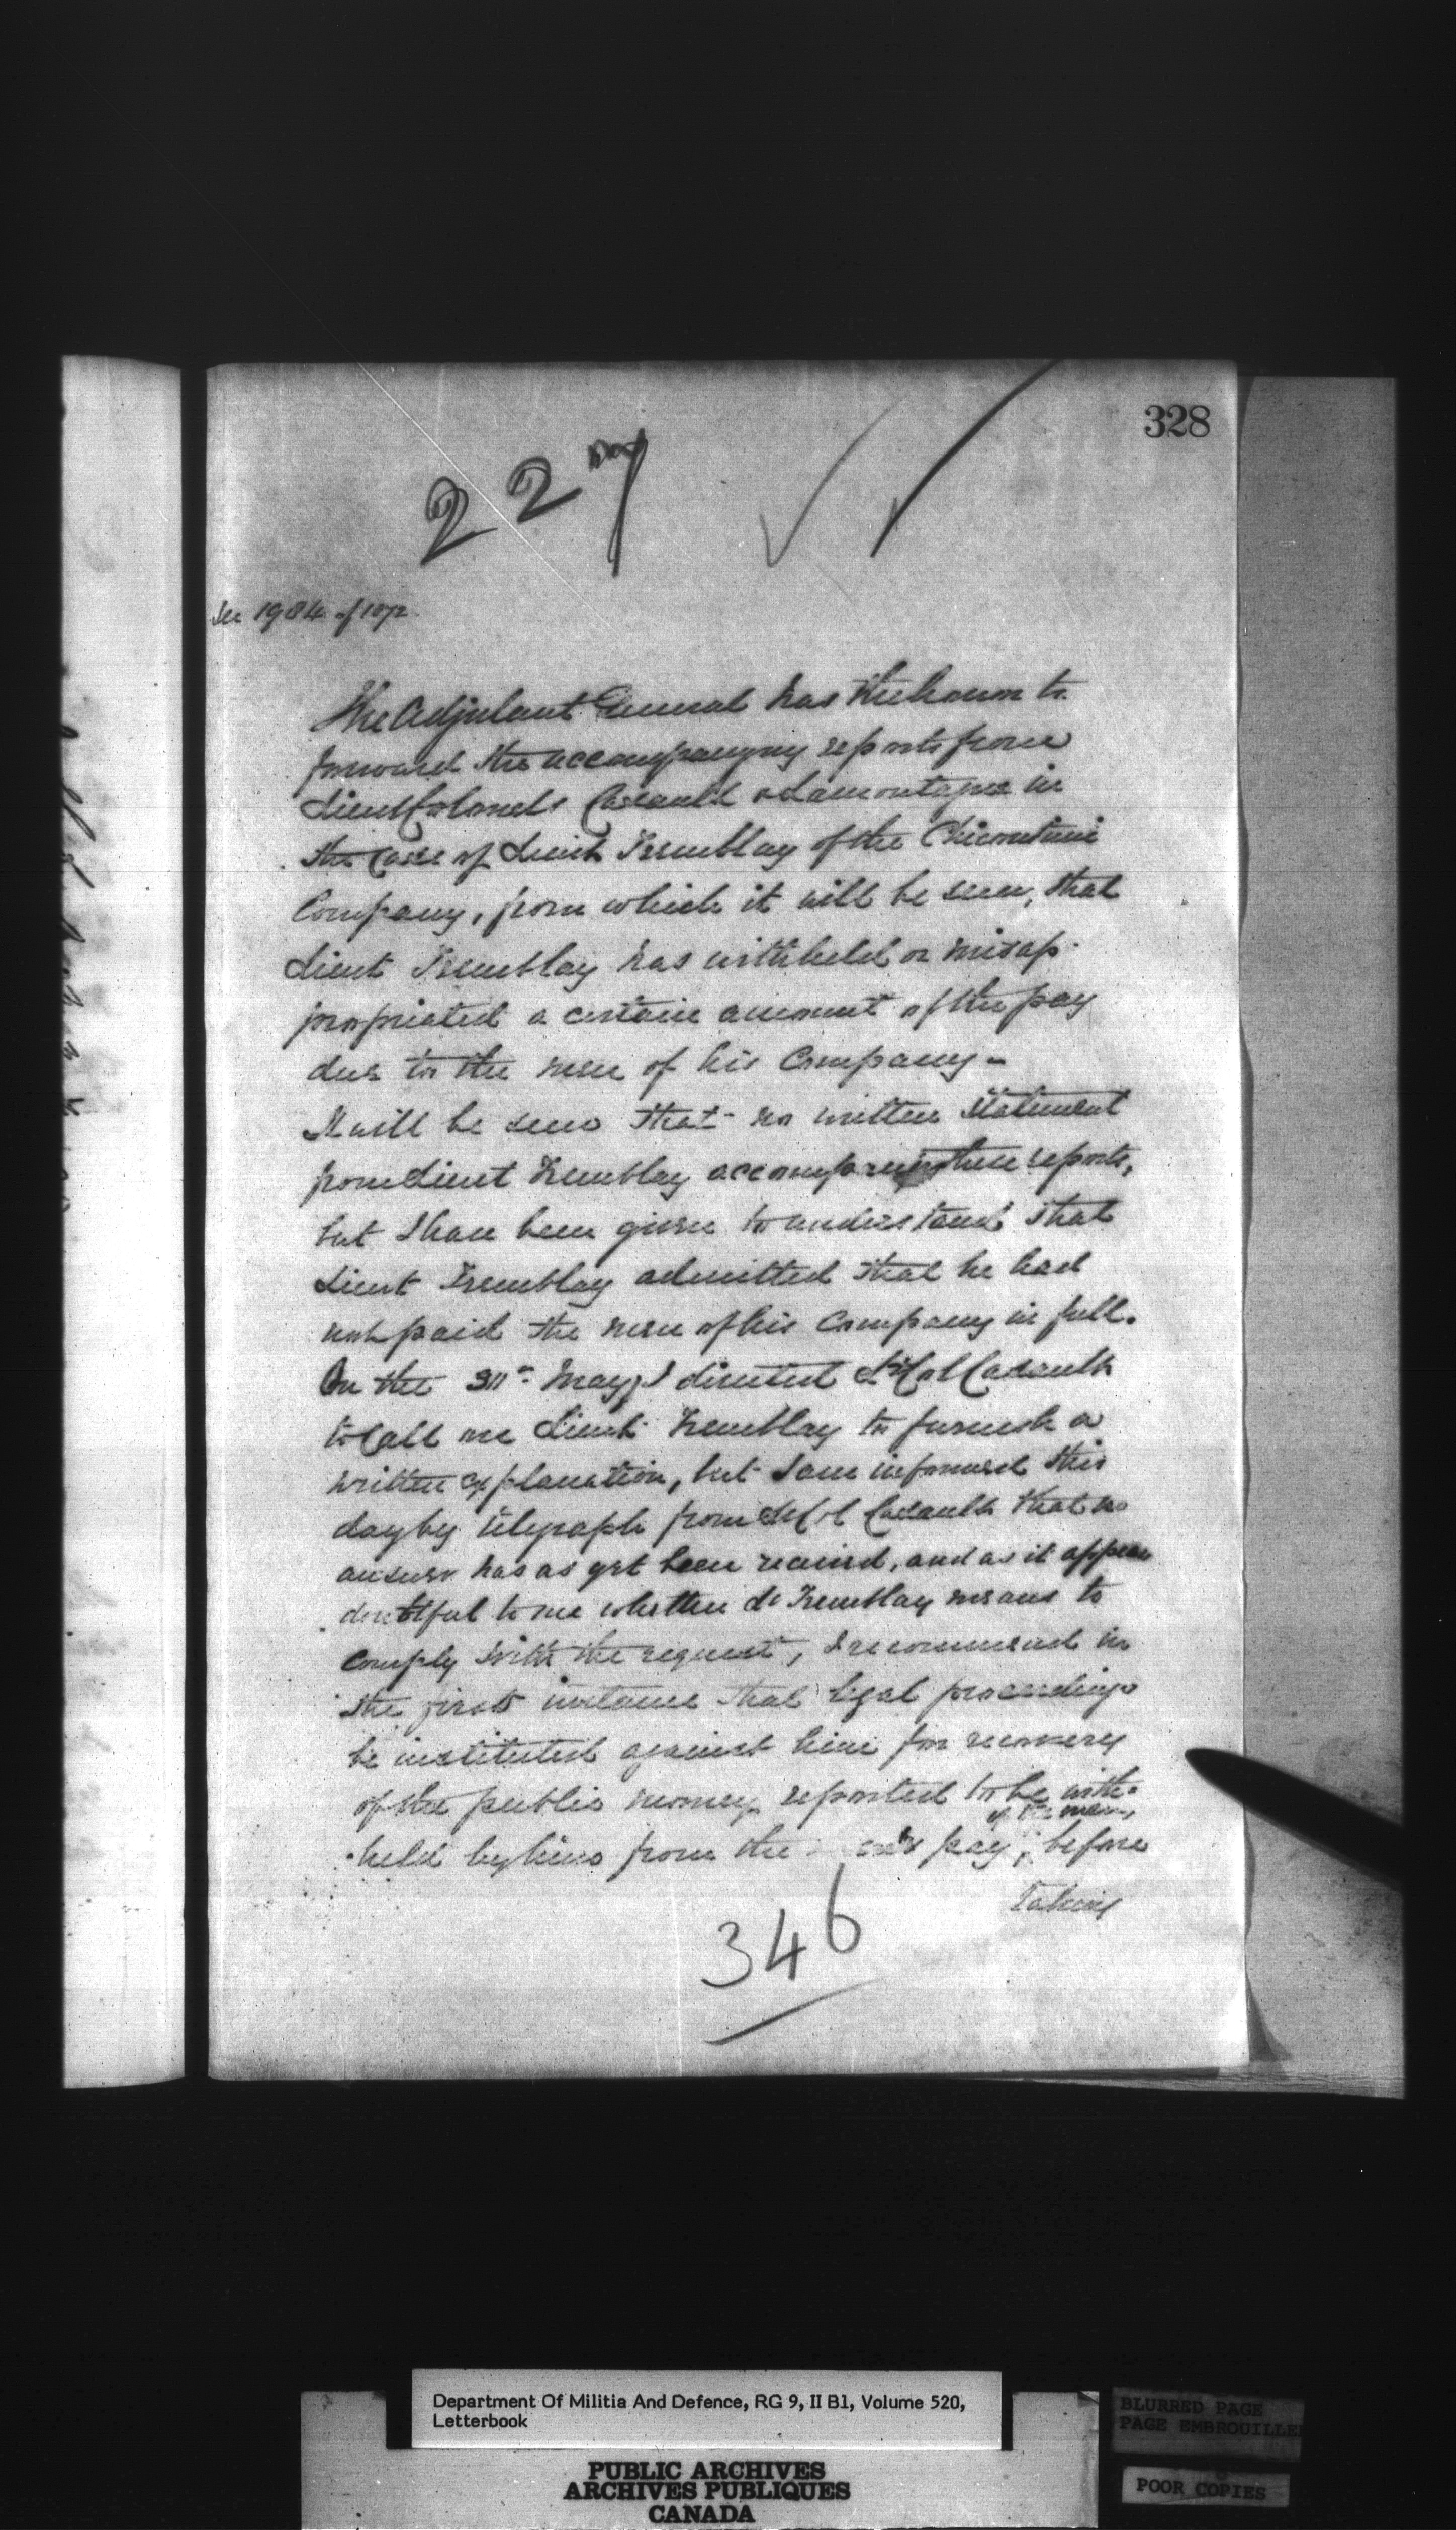 328
227
See 1984 of 1872
The Adjutant General has the honor to
forward the accompanying reports from
Lieut Colonels Casault & Lamontagne in
the case of Lieut Tremblay of the Chicoutimi
Company, from which it will be seen, that
Lieut Tremblay has withheld or misap-
propriated a certain amount of the pay
due to the men of his Company -
It will be seen that no written statement
from Lieut Tremblay accompanies these reports,
but I have been given to understand that
Lieut Tremblay admitted that he had
not paid the men of his Company in full.
On the May, I directed Lt Col Casault
to call on Lieut Tremblay to furnish a
written explanation, but I am informed this
day by telegraph from Lt Col Casault that no
answer has as yet been received, and as it appears
doubtful to me whether Lt Tremblay means to
comply with the request, I recommend in
the first instance that legal proceedings
be instituted against him for recovery
of the public money reported to be with-
held by him from the pay of the men, before
taking
346
Department Of Militia And Defence, RG 9, II B1, Volume 520,
Letterbook
PUBLIC ARCHIVES
ARCHIVES PUBLIQUES
CANADA
BLURRED PAGE
PAGE EMBROUILLE
POOR COPIES